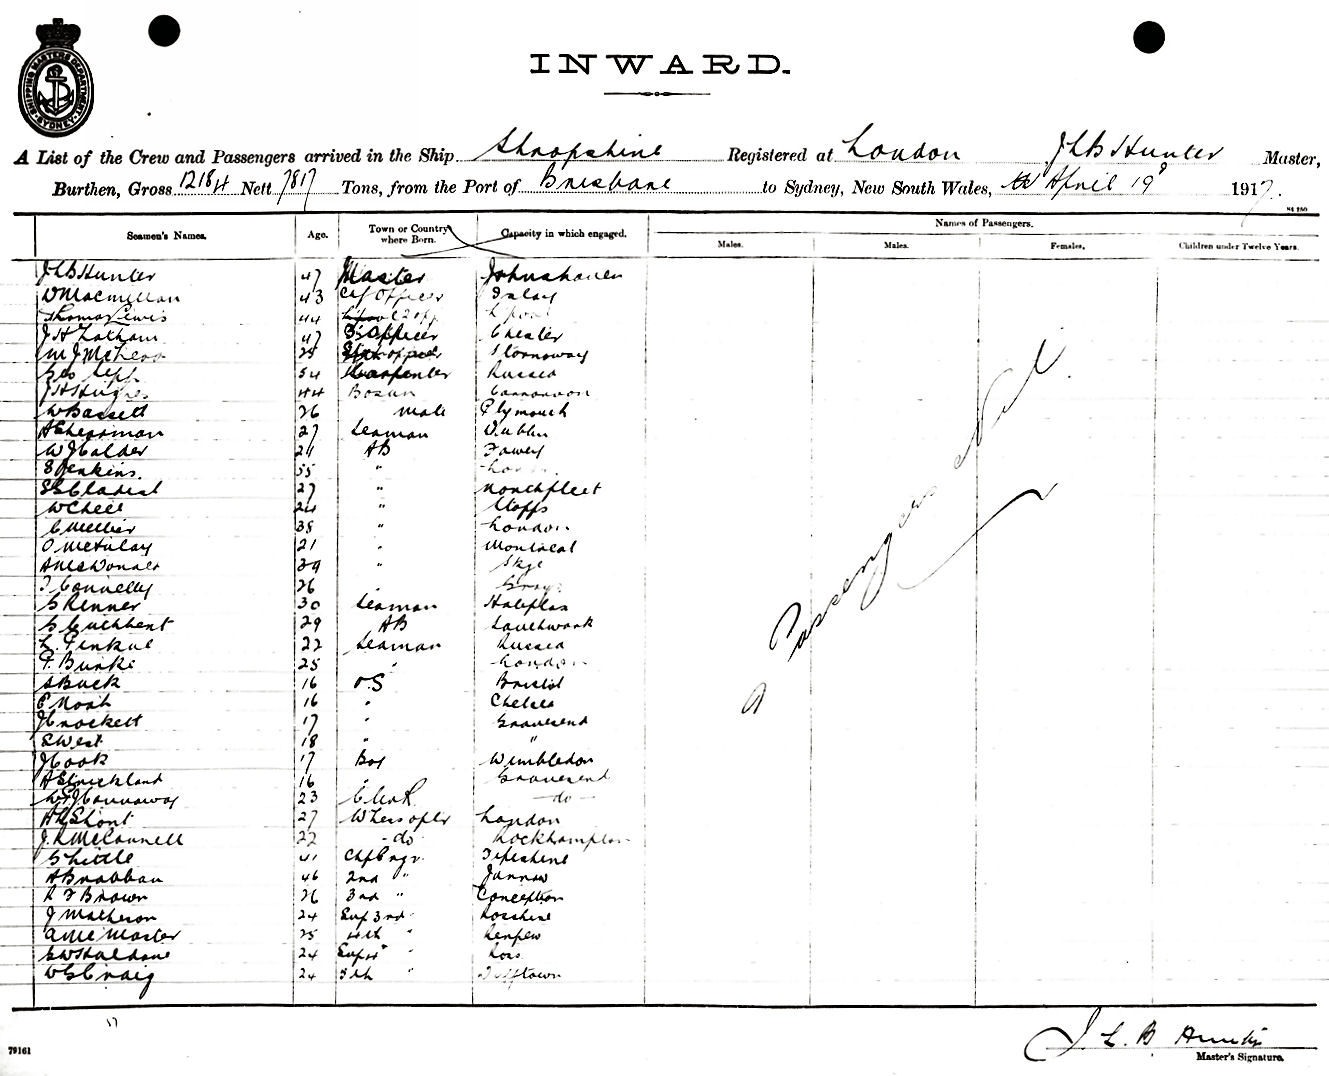 SHIPPING MASTERS DEPARTMENT SYDNEY
INWARD.
A List of the Crew and Passengers arrived in the Ship Shropshire Registered at London J L B Hunter Master,
Burthen, Gross 12184 Nett 7817 Tons, from the Port of Brisbane to Sydney, New South Wales, April 19 1917.
Seamen's Names. Age. Town or Country where Born. Capacity in which engaged. Names of Passengers.
Males. Males. Females. Children under Twelve Years.
J L B Hunter 47 Master Johnshaven
D Macmillan 43 Chf Officer Islay
Thomas Lewis 44 2 Off L'pool
J H Latham 47 3 Officer Chester
M J McLeod 25 Officer Stornoway
Geo 54 Carpenter Russia
J H Hughes 44 Bosun Carnarvon
W Bassett 26 mate Plymouth
A Sherman 27 Seaman Dublin
W J Calder 21 AB Fowey
S Jenkins 55 "
27 " Northfleet
24 " Staffs
38 " London
O McAulay 21 " Montreal
A McDonald 39 " Skye
T Connelly 26 " Grays
G Renner 30 Seaman
G Cuthbert 29 AB Southwark
22 Seaman Russia
F. Burke 25 " London
S Buck 16 OS Bristol
E Noah 16 " Chelsea
J Crockett 17 " Gravesend
S West 18 " "
J Cook 17 Boy Wimbledon
A Strickland 16 " Gravesend
23 Clerk do
A R Short 27 W'less opter London
J. R McConnell 22 do Rockhampton
G Little 41 Chf Engr Fifeshire
A Brabban 46 2nd " Jarrow
R F Brown 26 3rd " Conception
J Matheson 24 Sup 3rd Rosshire
A McMaster 25 4th " Renfrew
G W Haldane 24 Sup 4 " Ross
W G Craig 24 5th " Tufftown
Passengers Nil
J. L. B Hunter
Master's Signature.
79161